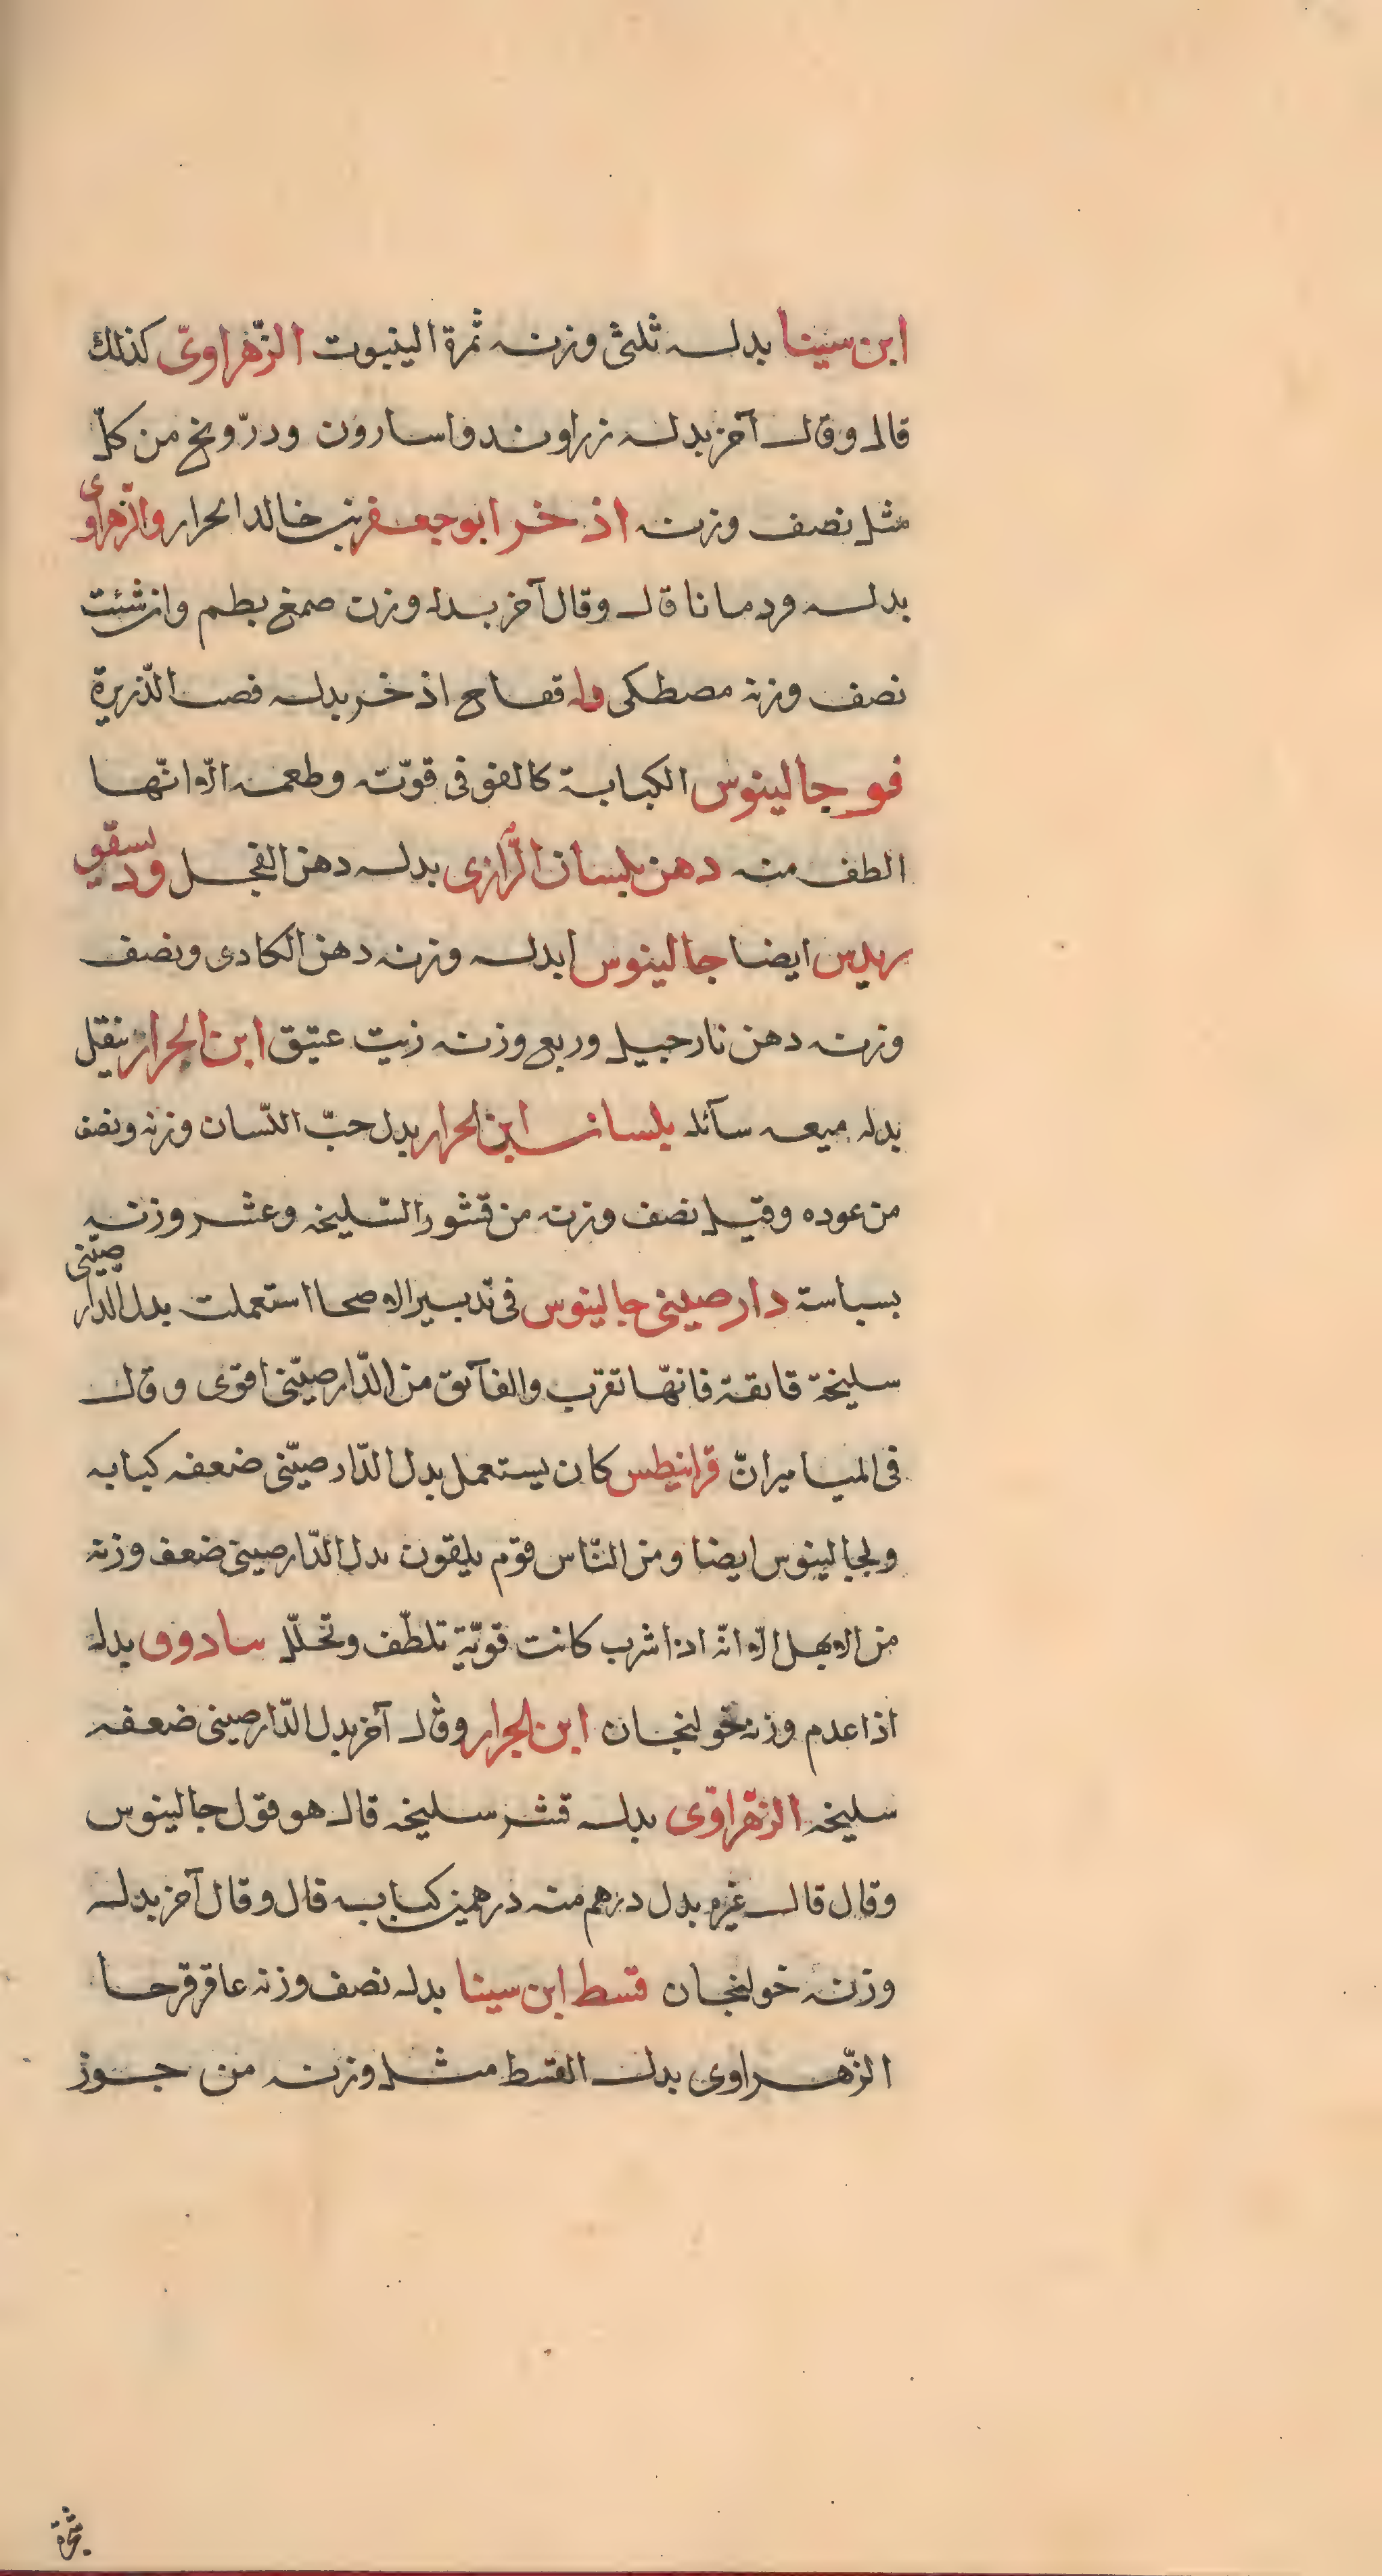 ابن سينا بدله ثلثى وزنه ثمرة الينبوت الزّهراوىّ كذلك
قال وقال آخر بدله زراوند واسارون ودرّونج من كلّ
مثل نصف وزنه اذخر ابو جعفر بن خالد الحرار والزهراوى
بدله ودمانا قال وقال آخر بدله وزن صمغ بطم وان شئت
نصف وزنه مصطكى وله فقاح اذخر بدله قصب الذّريرة
فو جالينوس الكبابة كالفو فى قوّته وطعمه الّا انّها
الطف منه دهن بلسان الرّازى بدله دهن الفجل ودسقو
ريدس ايضا جالينوس ابدله وزنه دهن الكادى ونصف
وزنه دهن نارجيل وربع وزنه زيت عتيق ابن الجرار ينقل
بدله ميعه سآئله بلسان ابن الحرار بدل حبّ اللسّان وزنه ونصف
من عوده وقيل نصف وزنه من قشور السّليخه وعشر وزنه
بسباسة دار صينى جالينوس فى تدبير الاصحا استعملت بدل الدّار صينى
سليخة فايقة فانهّا تقرب والفآئق من الدّار صيّنى اقوى وقال
فى الميامير انّ قرانيطس كان يستعمل بدل الدّار صيّنى ضعفه كبابه
ولجالينوس ايضا ومن النّاس قوم يلقون بدل الدّار صينى ضعف وزنه
من الابهل الّا انّه اذا شرب كانت قويّة تلطّف وتحللّ سادوق بدله
اذا عدم وزنه خولنجان ابن الجرار وقال آخر بدل الدّار صينى ضعفه
سليخه الزّهراوّى بدله قشر سليخه قال هو قول جالينوس
وقال قال غيره بدل درهم منه درهمين كبابه قال وقال آخر بدله
وزنه خولنجان قسط ابن سينا بدله نصف وزنه عاقرقرحا
الزّهراوى بدل القسط مثل وزنه من جوز